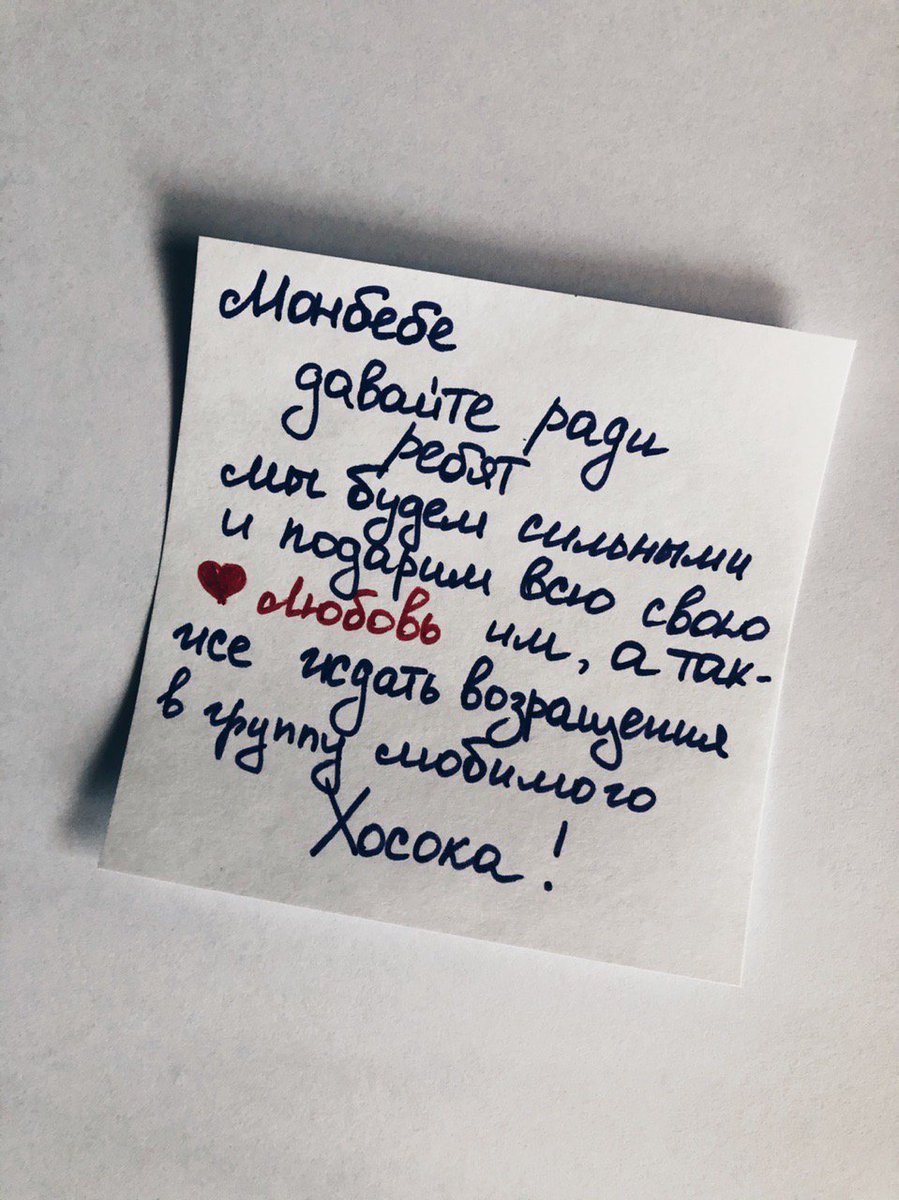 Монбебе
давайте ради
ребят
мы будем сильными
и подарим всю свою
♥ любовь им, а так-
же ждать возращения
в группу любимого
Хосока!